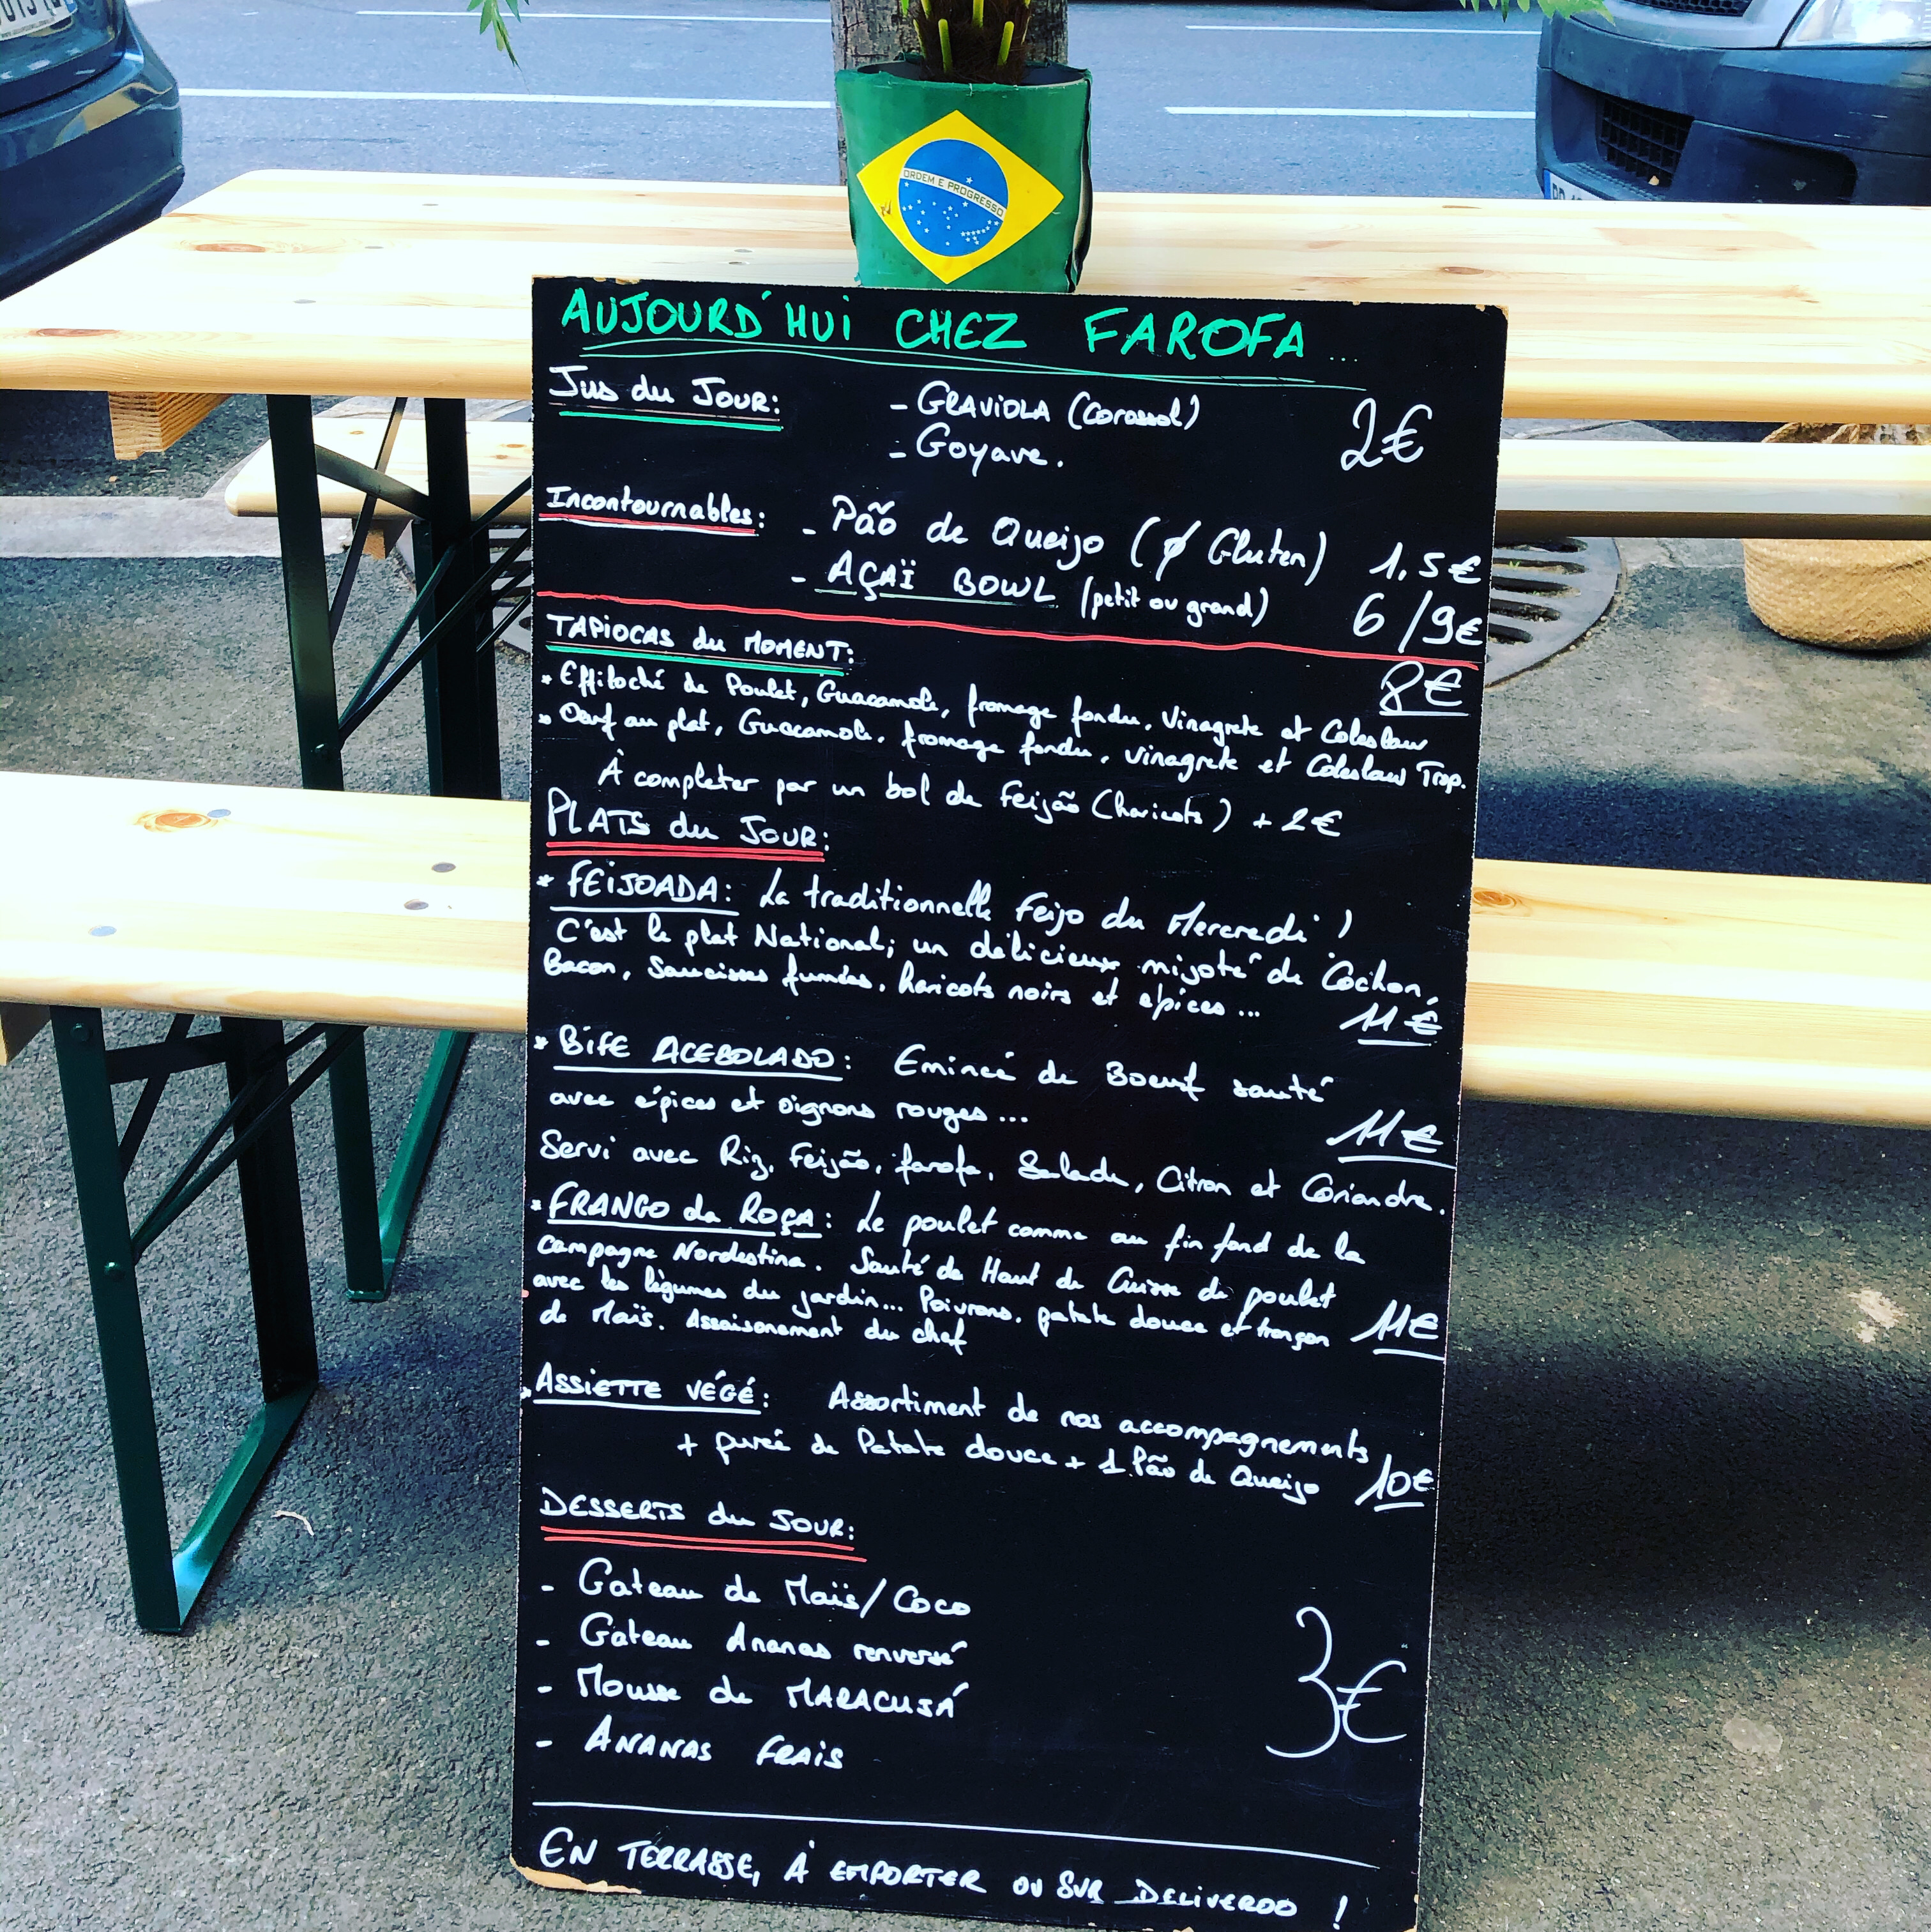 ORDEM E PROGRESSO
AUJOURD'HUI CHEZ FAROFA...
Jus du Jour: - GRAVIOLA (Corossol) 2€
- Goyave.
Incontournables: - Pão de Queijo (ø Gluten) 1,5€
- AÇAÏ BOWL (petit ou grand) 6/9€
TAPIOCAS du MOMENT: 8€
* Effiloché de Poulet, Guacamole, fromage fondu, Vinagrete et Coleslaw
* Oeuf au plat, Guacamole, fromage fondu, vinagrete et Coleslaw Trop.
À completer par un bol de Feijão (haricots) + 2€
PLATS du JOUR:
* FEIJOADA: La traditionnelle Feijo du Mercredi !
C'est le plat National; un délicieux mijoté de Cochon,
Bacon, Saucisses fumées, haricots noirs et épices... 11€
* BIFE ACEBOLADO: Emincé de Boeuf sauté
avec épices et oignons rouges... 11€
Servi avec Riz, Feijão, farofa, Salade, Citron et Coriandre.
* FRANGO da ROÇA: Le poulet comme au fin fond de la
Campagne Nordestina. Sauté de Haut de Cuisse de poulet
avec les légumes du jardin... Poivrons, patate douce et tronçon 11€
de Maïs. Assaisonement du chef
* ASSIETTE VÉGÉ: Assortiment de nos accompagnements
+ purée de Patate douce + 1 Pão de Queijo 10€
DESSERTS du JOUR:
- Gateau de Maïs/Coco
- Gateau Ananas renversé
- Mousse de MARACUJÁ 3€
- ANANAS FRAIS
EN TERRASSE, À EMPORTER OU SUR DELIVEROO !